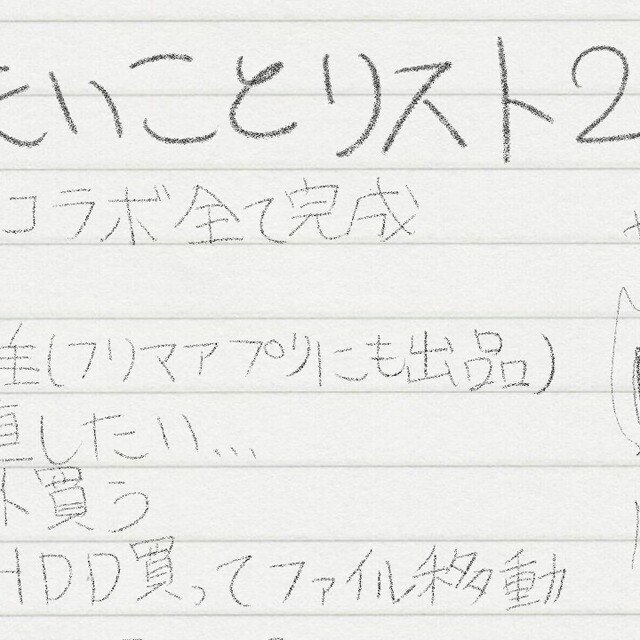 たいことリスト2
コラボ全て完成
(フリマアプリにも出品)
直したい...
ト買う
HDD買ってファイル移動